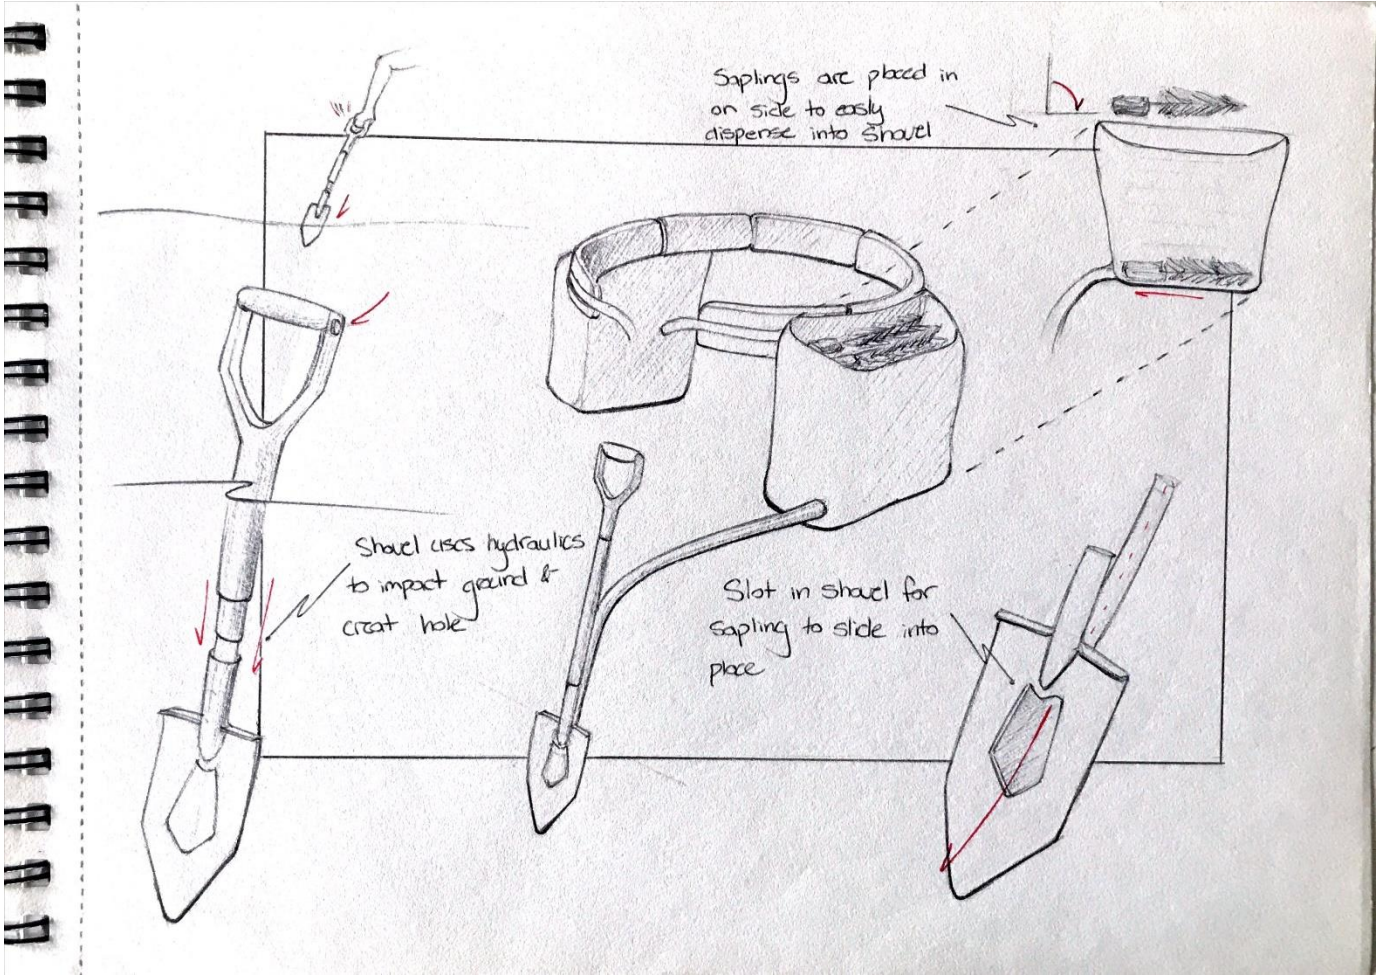 Saplings are placed in
on side to easily
dispense into shovel
Shovel uses hydraulics
to impact ground &
creat hole
Slot in shovel for
sapling to slide into
place